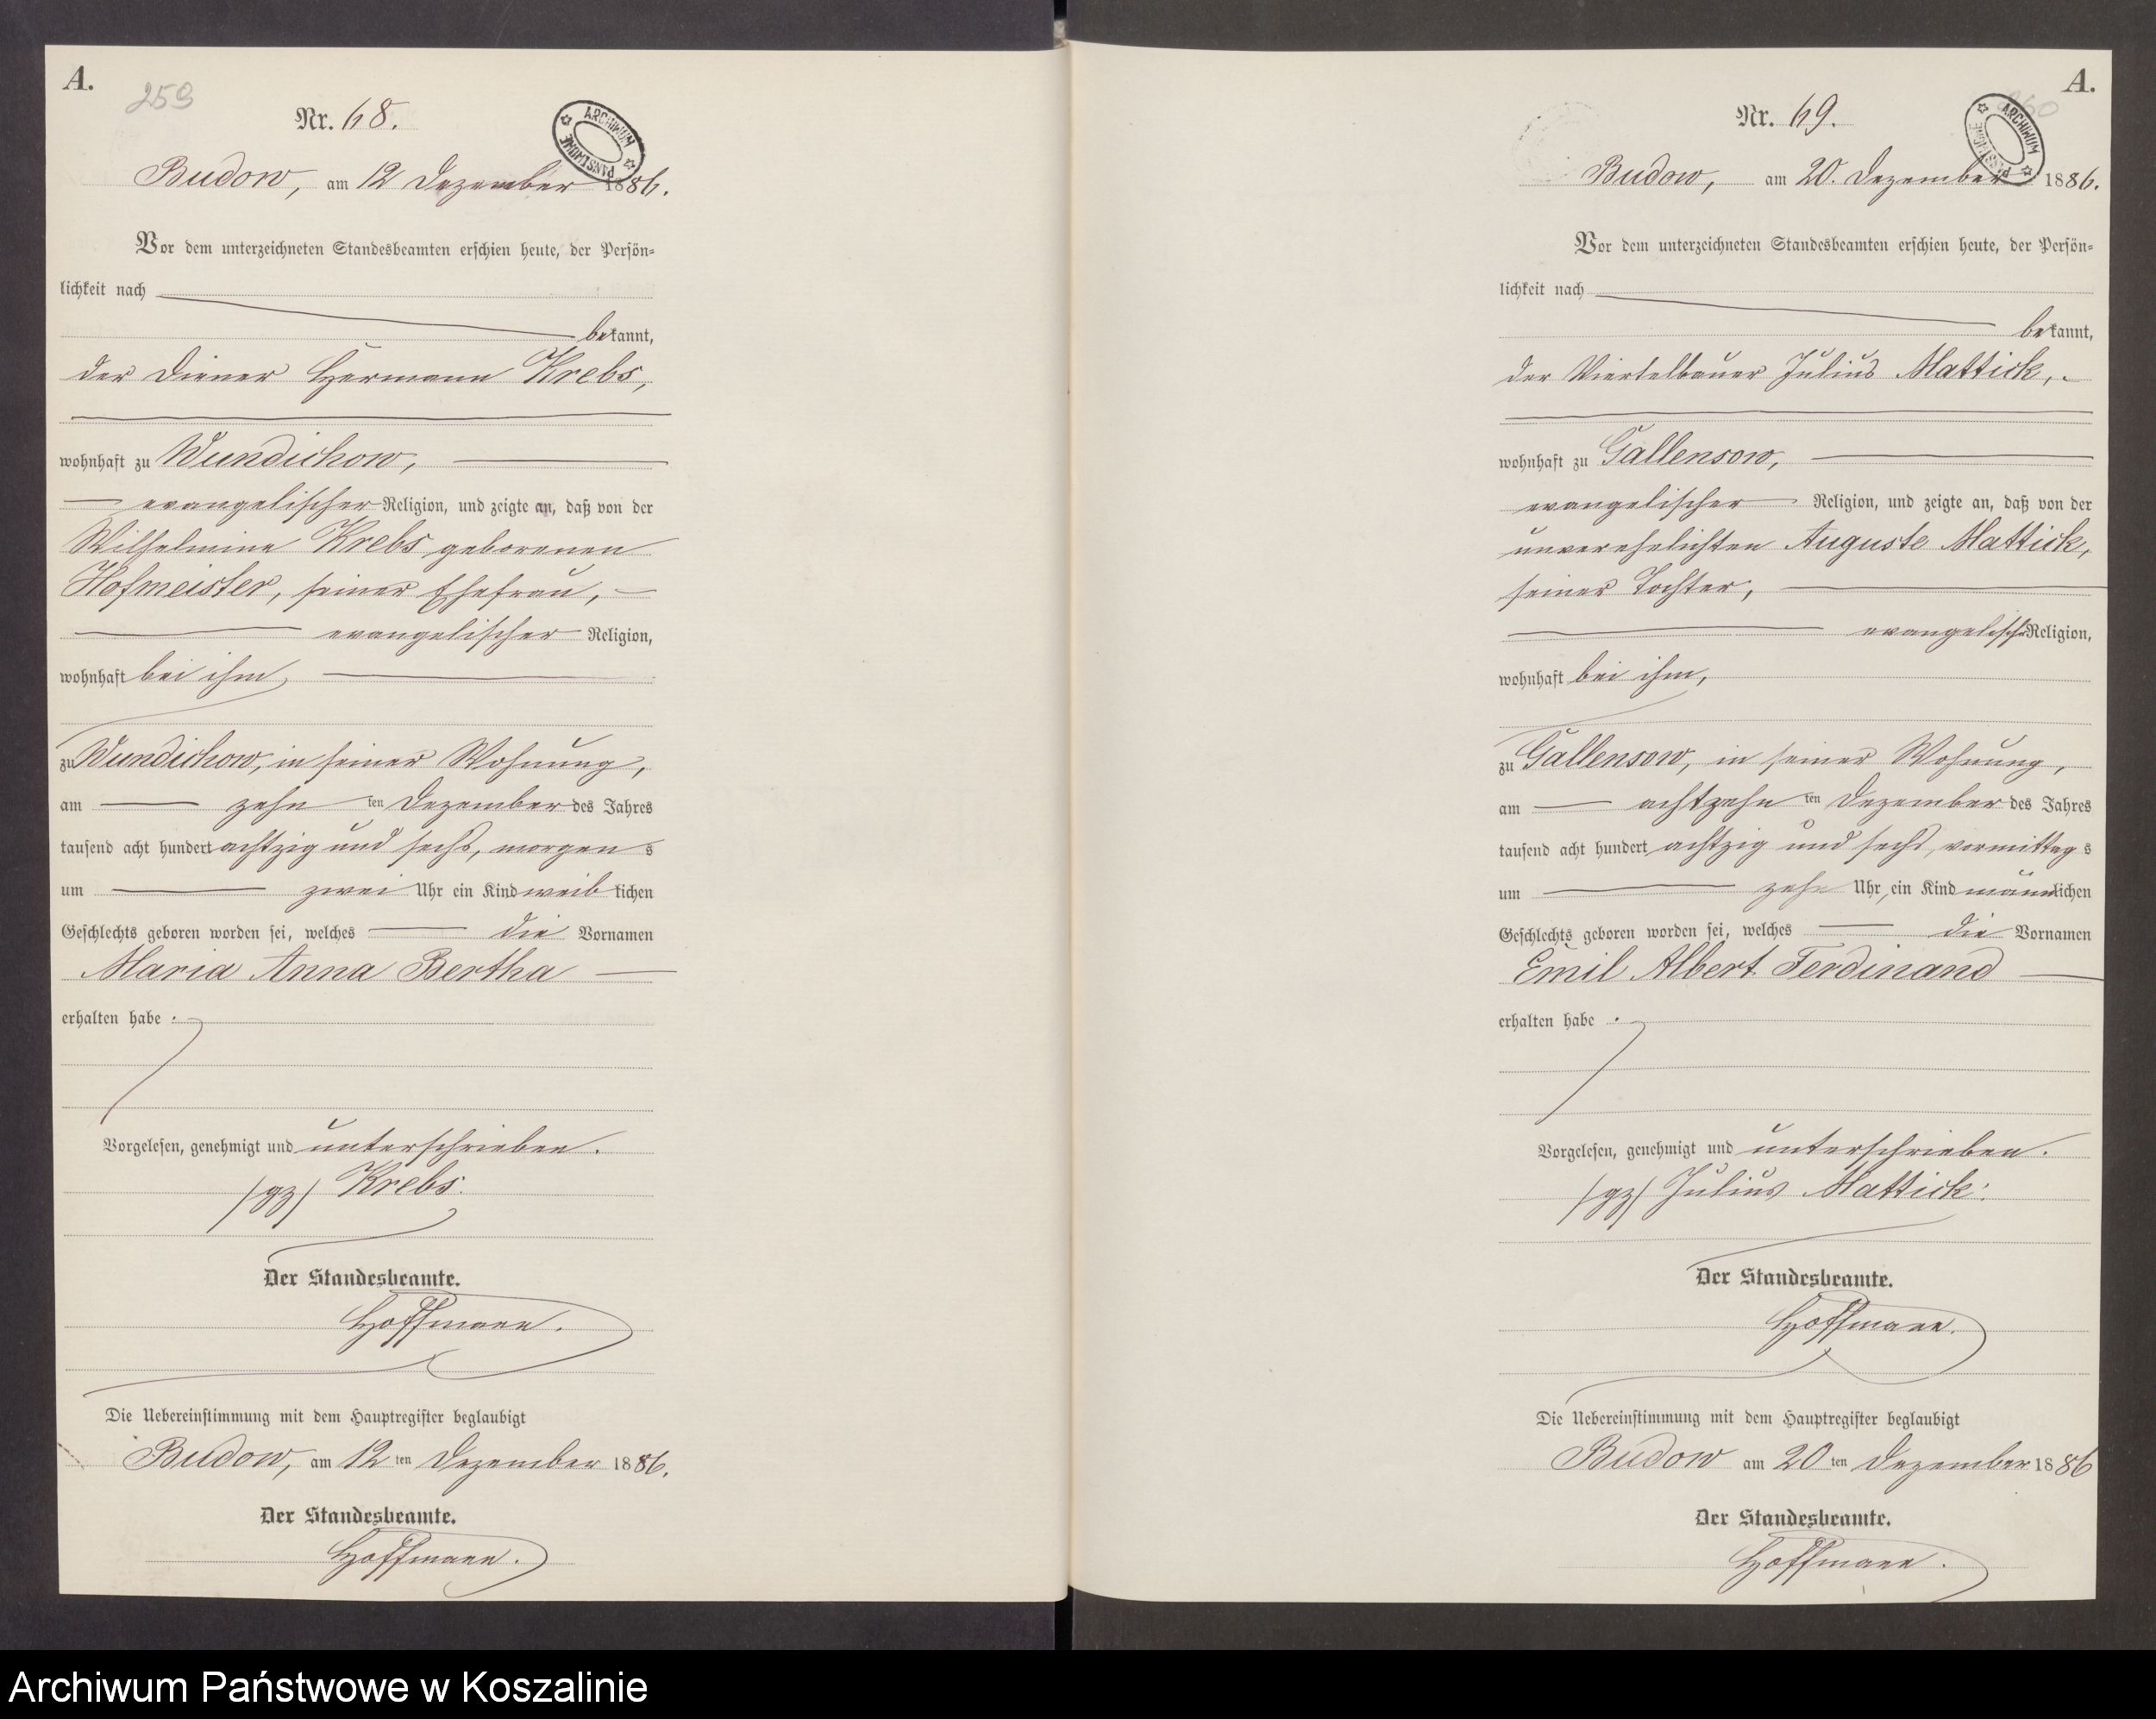 A.
259
Nr. 68.
ARCHIWUM PAŃSTWOWE
Budow, am 12 Dezember 1886.
Vor dem unterzeichneten Standesbeamten erschien heute, der Persön-
lichkeit nach
bekannt,
der Diener Hermann Krebs,
wohnhaft zu Wundichow,
evangelischer Religion, und zeigte an, daß von der
Wilhelmine Krebs geborenen
Hofmeister, seiner Ehefrau,
evangelischer Religion,
wohnhaft bei ihm,
zu Wundichow, in seiner Wohnung,
am zehn ten Dezember des Jahres
tausend acht hundert achtzig und sechs, morgens
um zwei Uhr ein Kind weiblichen
Geschlechts geboren worden sei, welches die Vornamen
Maria Anna Bertha
erhalten habe.
Vorgelesen, genehmigt und unterschrieben.
/gz/ Krebs.
Der Standesbeamte.
Hoffmann.
Die Uebereinstimmung mit dem Hauptregister beglaubigt
Budow, am 12 ten Dezember 1886.
Der Standesbeamte.
Hoffmann.
A.
260
Nr. 69.
ARCHIWUM PAŃSTWOWE
Budow, am 20. Dezember 1886.
Vor dem unterzeichneten Standesbeamten erschien heute, der Persön-
lichkeit nach
bekannt,
der Viertelbauer Julius Mattick,
wohnhaft zu Gallensow,
evangelischer Religion, und zeigte an, daß von der
unverehelichten Auguste Mattick,
seiner Tochter,
evangelisch Religion,
wohnhaft bei ihm,
zu Gallensow, in seiner Wohnung,
am achtzehn ten Dezember des Jahres
tausend acht hundert achtzig und sechs, vormittags
um zehn Uhr, ein Kind männlichen
Geschlechts geboren worden sei, welches die Vornamen
Emil Albert Ferdinand
erhalten habe.
Vorgelesen, genehmigt und unterschrieben.
/gz/ Julius Mattick.
Der Standesbeamte.
Hoffmann.
Die Uebereinstimmung mit dem Hauptregister beglaubigt
Budow am 20 ten Dezember 1886
Der Standesbeamte.
Hoffmann.
Archiwum Państwowe w Koszalinie